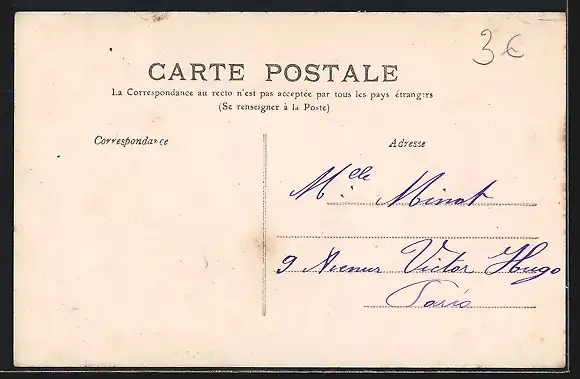 3€
CARTE POSTALE
La Correspondance au recto n'est pas acceptée par tous les pays étrangers
(Se renseigner à la Poste)
Correspondance
Adresse
Mlle Minot
9 Avenue Victor Hugo
Paris